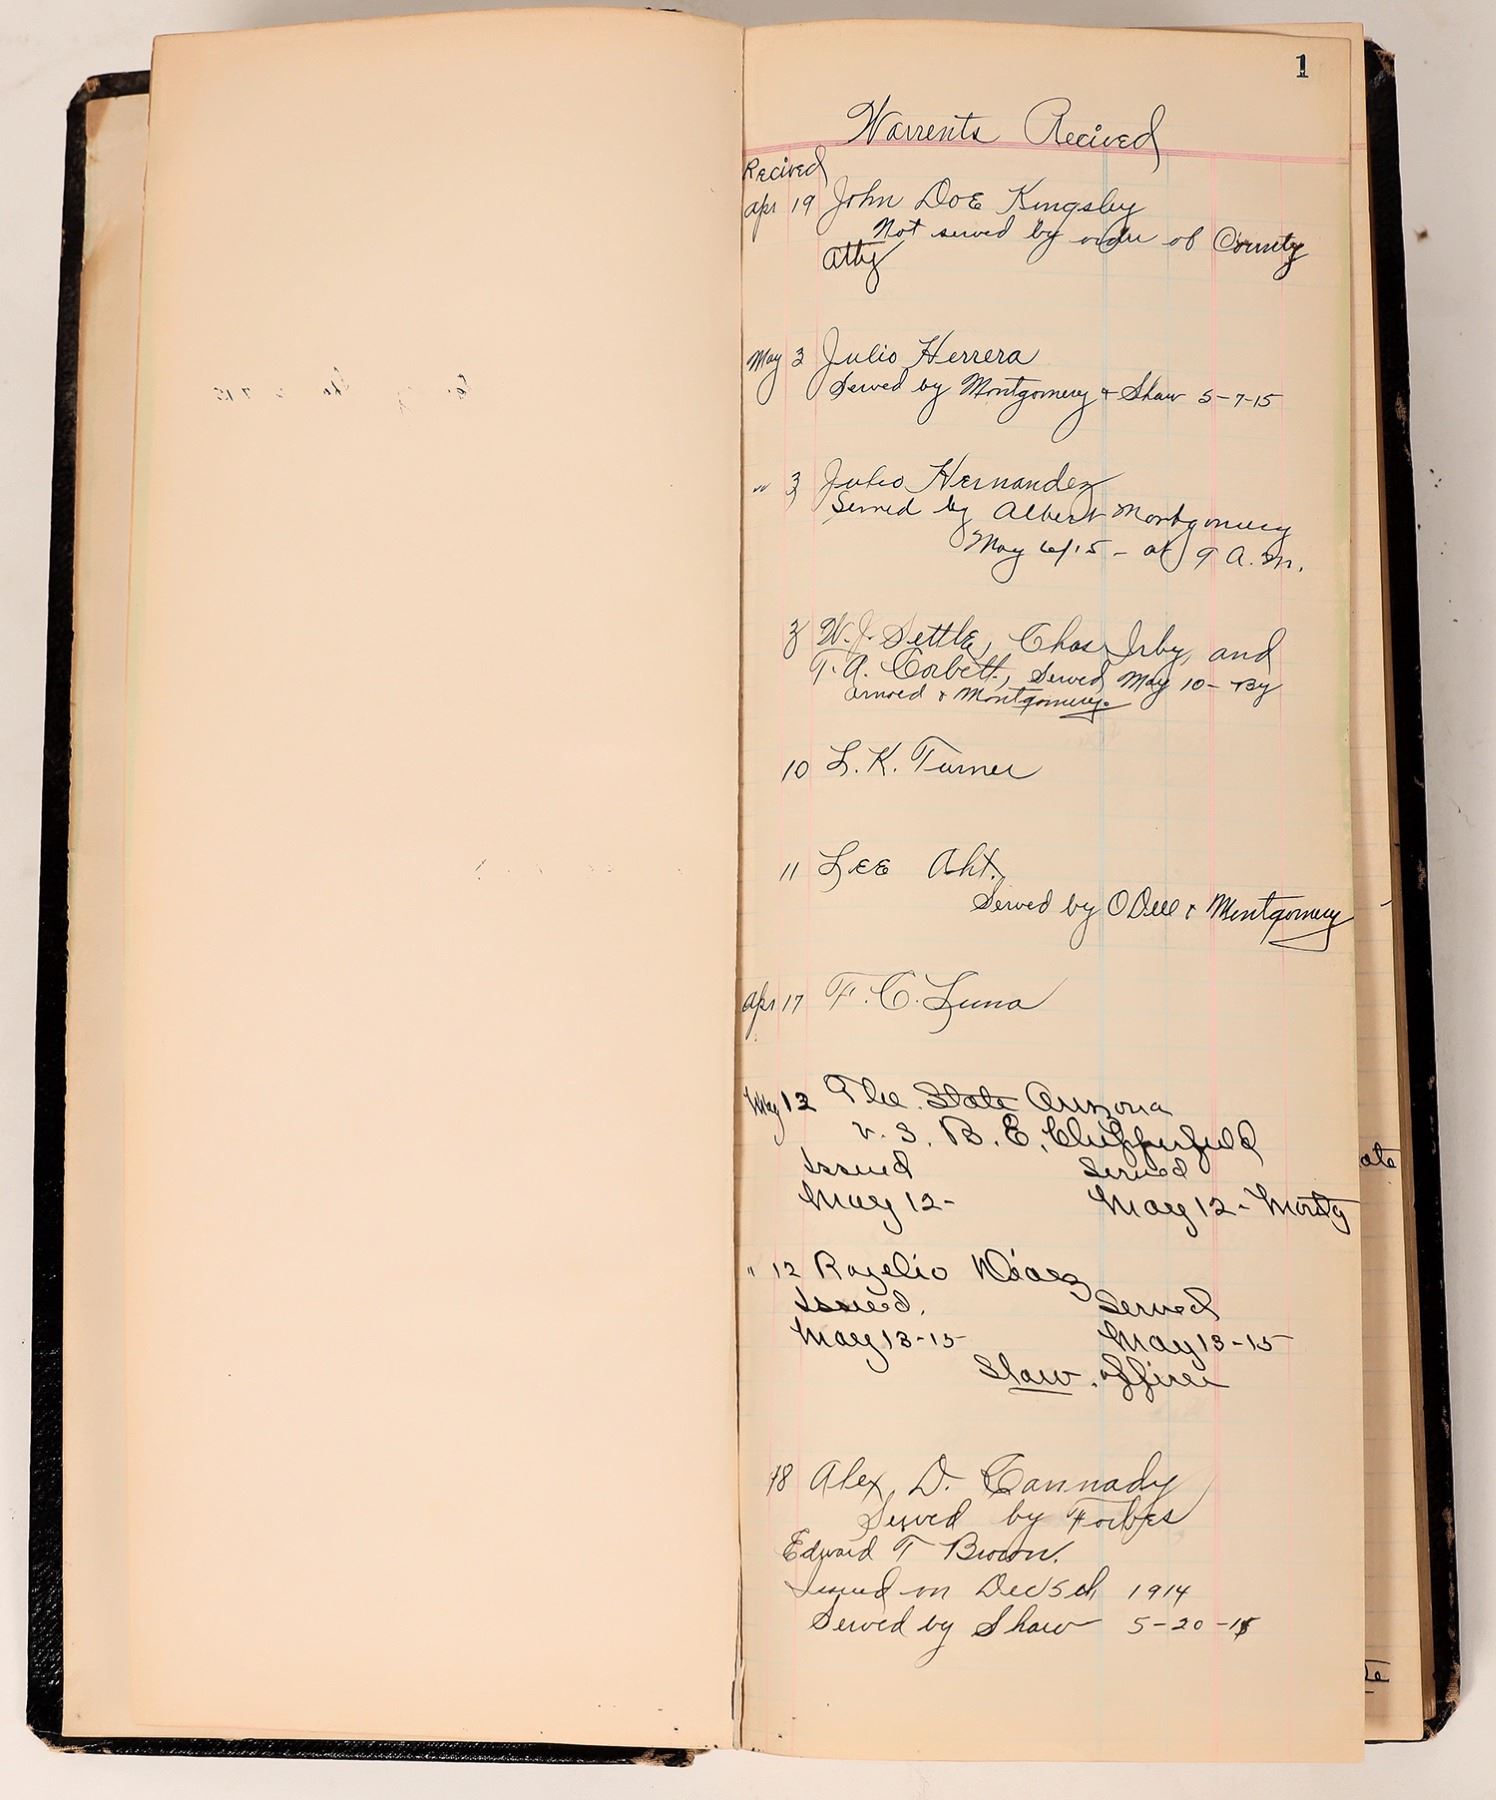 1
Warrents Recived
Recived
Apr 19 John Doe Kingsley
Not served by order of County
Atty
May 3 Julio Herrera
Served by Montgomery & Shaw 5-7-15
" 3 Julio Hernandez
Served by Albert Montgomery
May 6/15 - at 9 A.M.
3 W. J. Settle, Chas Irby, and
T. A. Corbett, Served May 10 - By
& Montgomery.
10 L. K. Turner
11 Lee Aht.
Served by O Dell & Montgomery
Apr 17 F. C. Luna
May 12 The State Arizona
v. s. B. E. Chipperfield
Issued Served
May 12 - May 12 - Montg
" 12 Rogelio Diaz
Issued. Served
May 13-15 May 13-15
Shaw. officer
18 Alex. D. Cannady
Served by Forbes
Edward T Brown.
Issued on Dec 5th 1914
Served by Shaw 5-20-15
ate
te